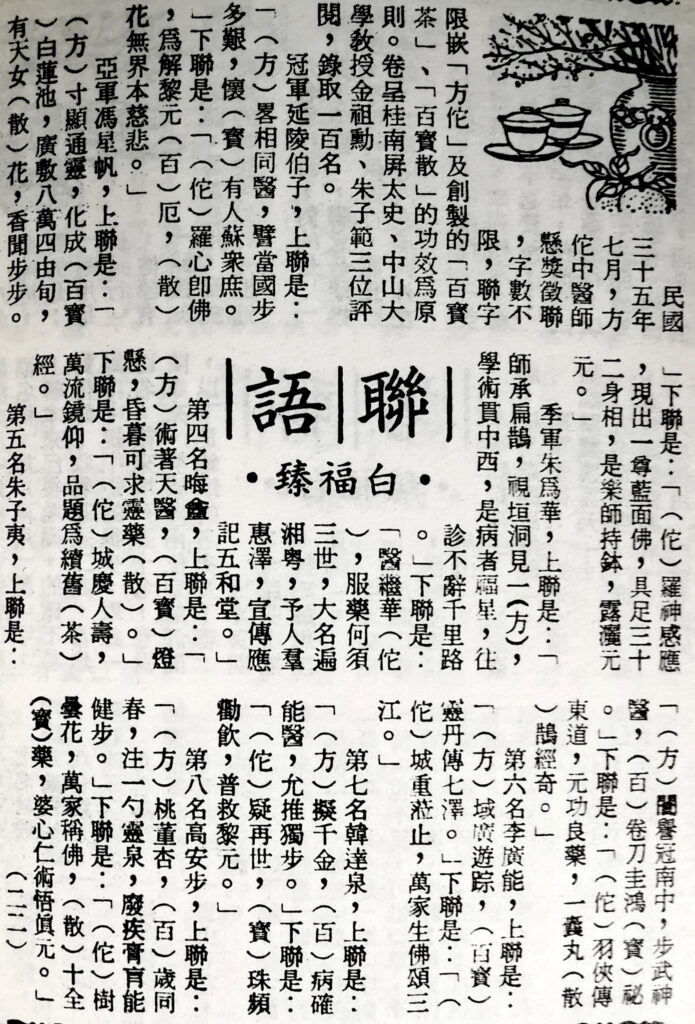 聯語
•白福臻•
民國
三十五年
七月，方
佗中醫師
懸獎徵聯
，字數不
限，聯字
限嵌「方佗」及創製的「百寶
茶」、「百寶散」的功效爲原
則。卷呈桂南屏太史、中山大
學教授金祖勳、朱子範三位評
閱，錄取一百名。
冠軍延陵伯子，上聯是：
「（方）畧相同醫，譬當國步
多艱，懷（寶）有人蘇衆庶。
」下聯是：「（佗）羅心卽佛
，爲解黎元（百）厄，（散）
花無界本慈悲。」
亞軍馮星帆，上聯是：「
（方）寸顯通靈，化成（百寶
）白蓮池，廣敷八萬四由旬，
有天女（散）花，香聞步步。
」下聯是：「（佗）羅神感應
，現出一尊藍面佛，具足三十
二身相，是樂師持鉢，露灑元
元。」
季軍朱爲華，上聯是：「
師承扁鵲，視垣洞見一（方），
學術貫中西，是病者福星，往
診不辭千里路
。」下聯是：
「醫繼華（佗
），服藥何須
三世，大名遍
湘粤，予人羣
惠澤，宣傳應
記五和堂。」
第四名晦盦，上聯是：「
（方）術著天醫，（百寶）燈
懸，昏暮可求靈藥（散）。」
下聯是：「（佗）城慶人壽，
萬流鏡仰，品題爲續舊（茶）
經。」
第五名朱子夷，上聯是：
「（方）闉譽冠南中，步武神
醫，（百）卷刀圭鴻（寶）祕
。」下聯是：「（佗）羽俠傳
東道，元功良藥，一囊丸（散
）鵲經奇。」
第六名李廣能，上聯是：
「（方）域廣遊踪，（百寶）
靈丹傳七澤。」下聯是：「（
佗）城重蒞止，萬家生佛頌三
江。」
第七名韓達泉，上聯是：
「（方）擬千金，（百）病確
能醫，允推獨步。」下聯是：
「（佗）疑再世，（寶）珠頻
勸飲，普救黎元。」
第八名高安步，上聯是：
「（方）桃董杏，（百）歲同
春，注一勺靈泉，廢疾膏肓能
健步。」下聯是：「（佗）樹
曇花，萬家稱佛，（散）十全
（寶）藥，婆心仁術悟眞元。」
（一二一）